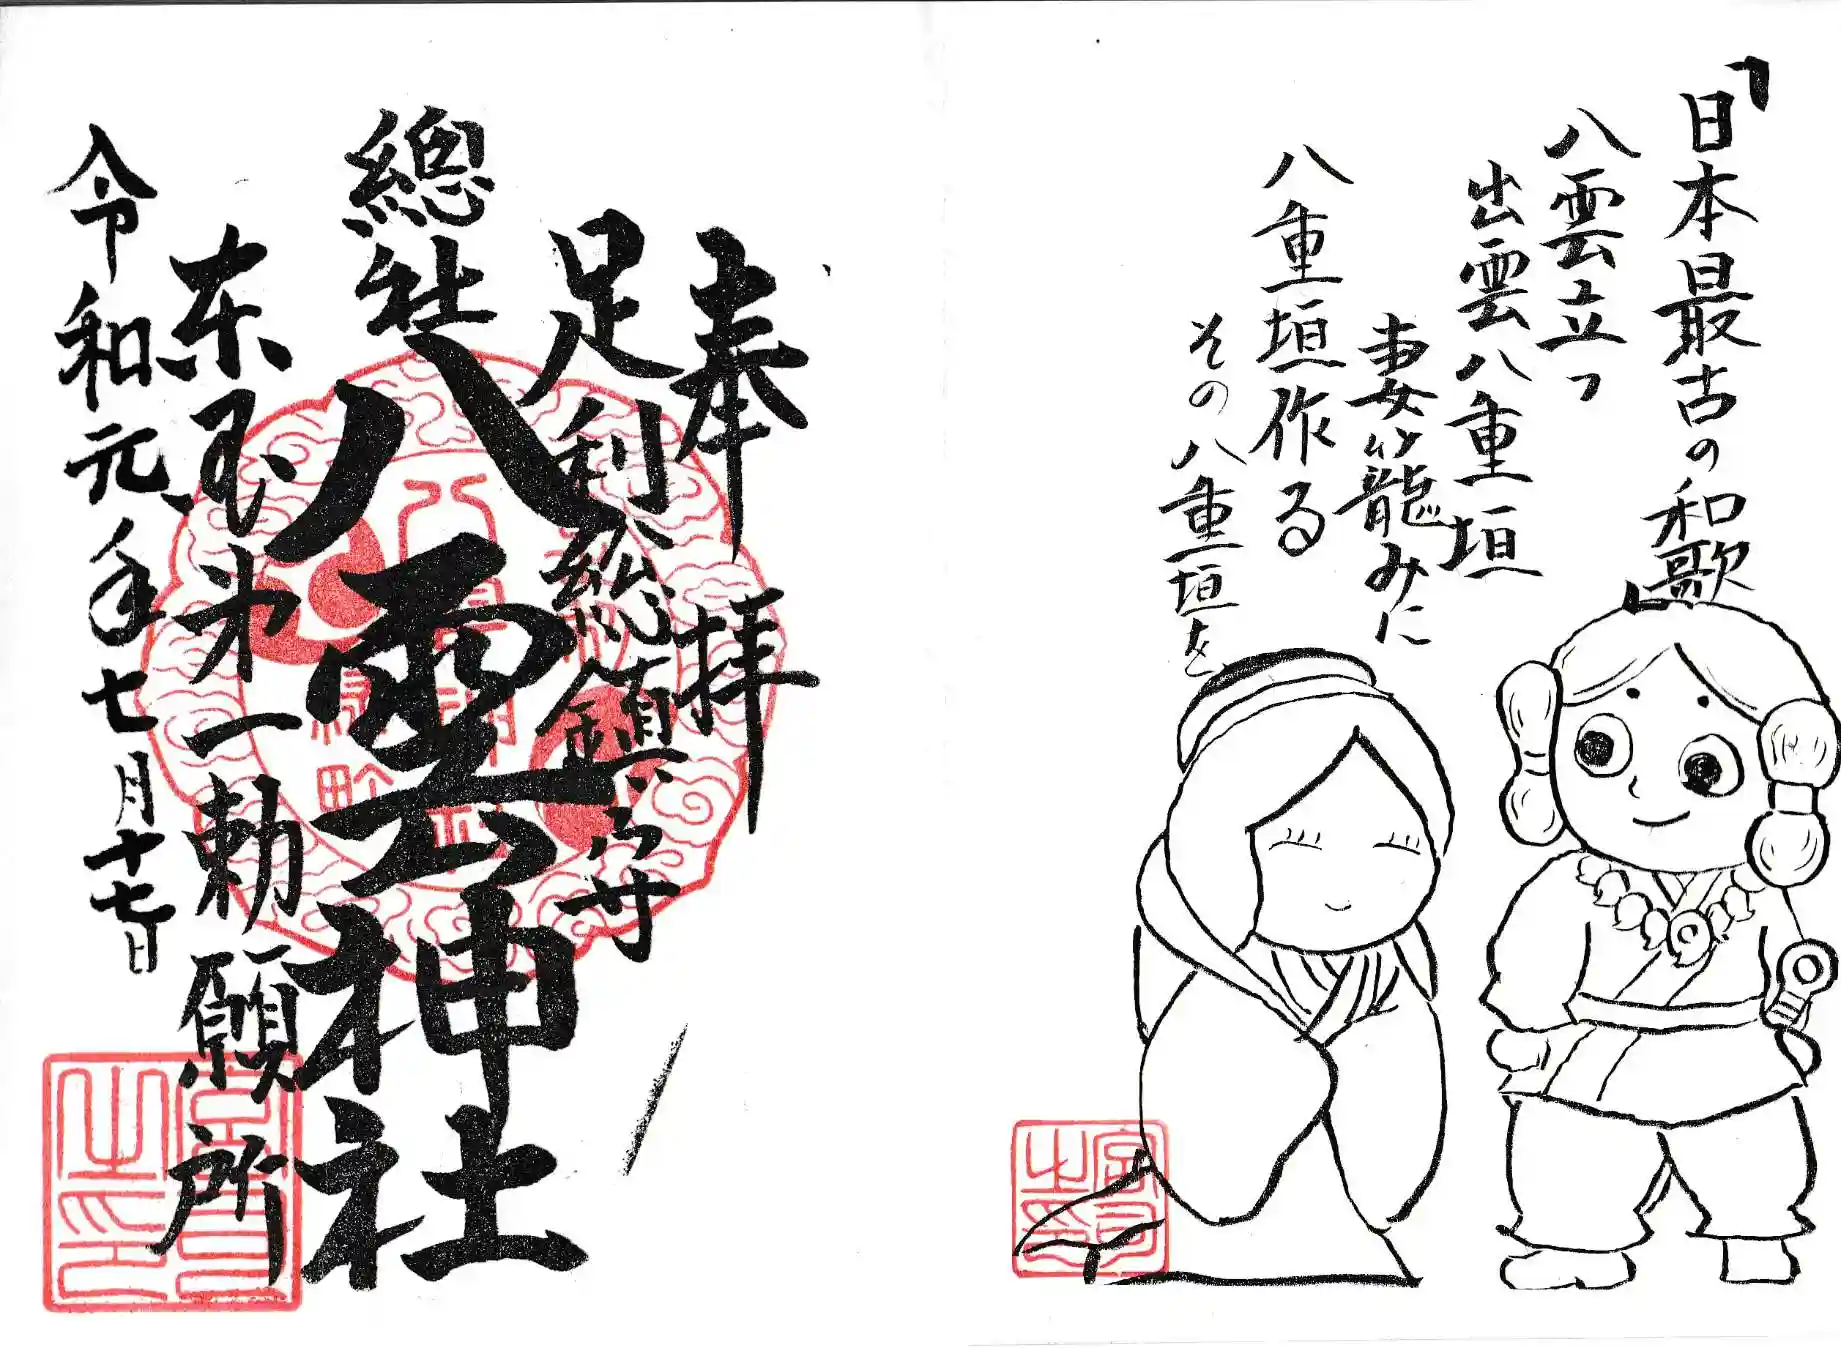 「日本最古の和歌」
八雲立つ
出雲八重垣
妻籠みに
八重垣作る
その八重垣を
奉拝
足利総鎮守
總社
八雲神社
东国第一勅願所
令和元年七月十七日
宮司之印
宮司之印